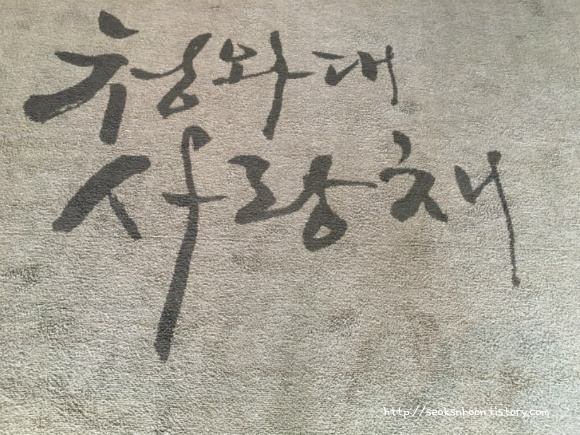 청와대
사랑채
http://seoksnhoon.tistory.com